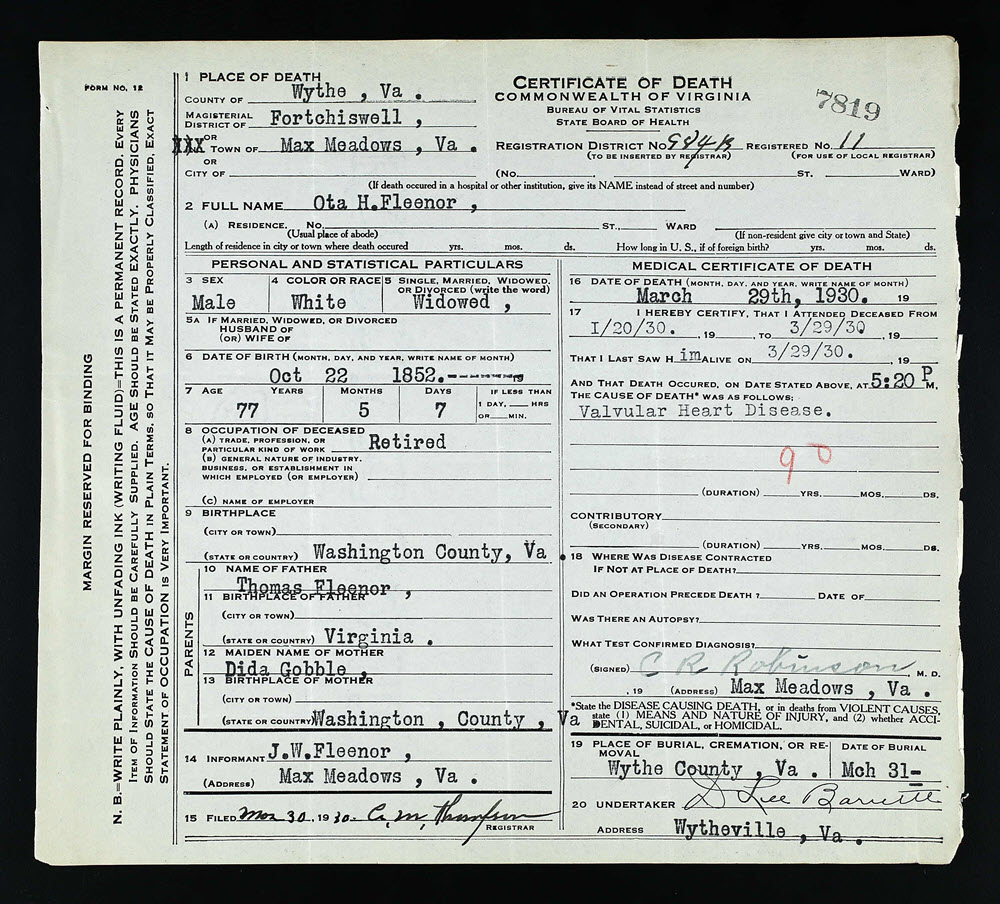 FORM NO. 12
MARGIN RESERVED FOR BINDING
N. B.=WRITE PLAINLY, WITH UNFADING INK (WRITING FLUID)=THIS IS A PERMANENT RECORD. EVERY
ITEM OF INFORMATION SHOULD BE CAREFULLY SUPPLIED. AGE SHOULD BE STATED EXACTLY. PHYSICIANS
SHOULD STATE THE CAUSE OF DEATH IN PLAIN TERMS, SO THAT IT MAY BE PROPERLY CLASSIFIED, EXACT
STATEMENT OF OCCUPATION IS VERY IMPORTANT.
1 PLACE OF DEATH
COUNTY OF Wythe , Va .
MAGISTERIAL
DISTRICT OF Fortchiswell ,
XXX OR
TOWN OF Max Meadows , Va .
OR
CITY OF (No. ST. WARD)
CERTIFICATE OF DEATH
COMMONWEALTH OF VIRGINIA
BUREAU OF VITAL STATISTICS
STATE BOARD OF HEALTH
7819
REGISTRATION DISTRICT No. 984B REGISTERED No. 11
(TO BE INSERTED BY REGISTRAR) (FOR USE OF LOCAL REGISTRAR)
(If death occured in a hospital or other institution, give its NAME instead of street and number)
2 FULL NAME Ota H.Fleenor ,
(A) RESIDENCE. No. ST., WARD
(Usual place of abode) (If non-resident give city or town and State)
Length of residence in city or town where death occured yrs. mos. ds. How long in U. S., if of foreign birth? yrs. mos. ds.
PERSONAL AND STATISTICAL PARTICULARS
3 SEX
Male
4 COLOR OR RACE
White
5 SINGLE, MARRIED, WIDOWED,
OR DIVORCED (write the word)
Widowed ,
5A IF MARRIED, WIDOWED, OR DIVORCED
HUSBAND OF
(OR) WIFE OF
6 DATE OF BIRTH (MONTH, DAY, AND YEAR, WRITE NAME OF MONTH)
Oct 22 1852.------19
7 AGE YEARS MONTHS DAYS IF LESS THAN
77 5 7 1 DAY, HRS
OR MIN.
8 OCCUPATION OF DECEASED
(A) TRADE, PROFESSION, OR
PARTICULAR KIND OF WORK Retired
(B) GENERAL NATURE OF INDUSTRY.
BUSINESS, OR ESTABLISHMENT IN
WHICH EMPLOYED (OR EMPLOYER)
(C) NAME OF EMPLOYER
9 BIRTHPLACE
(CITY OR TOWN)
(STATE OR COUNTRY) Washington County, Va .
PARENTS
10 NAME OF FATHER
Thomas Fleenor ,
11 BIRTHPLACE OF FATHER
(CITY OR TOWN)
(STATE OR COUNTRY) Virginia .
12 MAIDEN NAME OF MOTHER
Dida Gobble ,
13 BIRTHPLACE OF MOTHER
(CITY OR TOWN)
(STATE OR COUNTRY) Washington , County , Va
14 INFORMANT J.W.Fleenor ,
(Address) Max Meadows , Va .
15 FILED Mar 30, 1930. C. M. Thompson
REGISTRAR
MEDICAL CERTIFICATE OF DEATH
16 DATE OF DEATH (MONTH, DAY, AND YEAR, WRITE NAME OF MONTH)
March 29th, 1930. 19
17 I HEREBY CERTIFY, THAT I ATTENDED DECEASED FROM
I/20/30. , 19 , TO 3/29/30 , 19
THAT I LAST SAW H im ALIVE ON 3/29/30. , 19
AND THAT DEATH OCCURED, ON DATE STATED ABOVE, AT 5:20 P M,
THE CAUSE OF DEATH* WAS AS FOLLOWS:
Valvular Heart Disease.
90
(DURATION) YRS. MOS. DS.
CONTRIBUTORY
(SECONDARY)
(DURATION) YRS. MOS. DS.
18 WHERE WAS DISEASE CONTRACTED
IF NOT AT PLACE OF DEATH?
DID AN OPERATION PRECEDE DEATH ? DATE OF
WAS THERE AN AUTOPSY?
WHAT TEST CONFIRMED DIAGNOSIS?
(SIGNED) C R Robinson , M. D.
, 19 (ADDRESS) Max Meadows , Va .
*State the DISEASE CAUSING DEATH, or in deaths from VIOLENT CAUSES,
state (1) MEANS AND NATURE OF INJURY, and (2) whether ACCI-
DENTAL, SUICIDAL, or HOMICIDAL.
19 PLACE OF BURIAL, CREMATION, OR RE-
MOVAL
Wythe County , Va .
DATE OF BURIAL
Mch 31-
20 UNDERTAKER D Lee Barnette
ADDRESS Wytheville , Va .